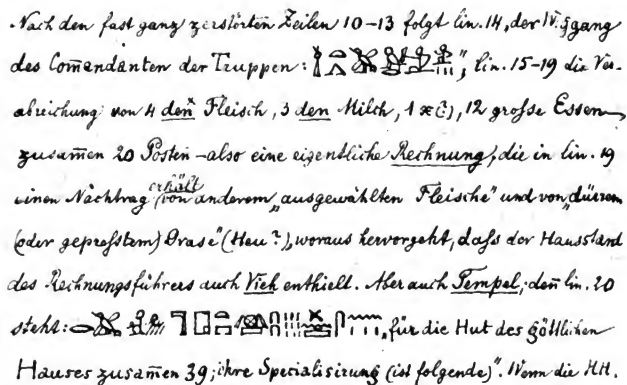 Nach den fast ganz zerstörten Zeilen 10–13 folgt lin. 14, der IV. gang
des Com̄andanten der Truppen: lin. 15–19 die Ver-
abreichung von 4 den Fleisch, 3 den Milch, 1 12 grofse Essen,
zusam̄en 20 Posten – also eine eigentliche Rechnung, die in lin. 19
einen Nachtrag erhält (von anderem „ausgewählten Fleische" und von „dürrem
(oder geprefstem) Grase" (Heu?), woraus hervorgeht, dafs der Hausstand
des Rechnungsführers auch Vieh enthielt. Aber auch Tempel; den̄ lin. 20
steht: „für die Hut des göttlichen
Hauses zusam̄en 39; ihre Specialisirung (ist folgende)". Wenn die HH.